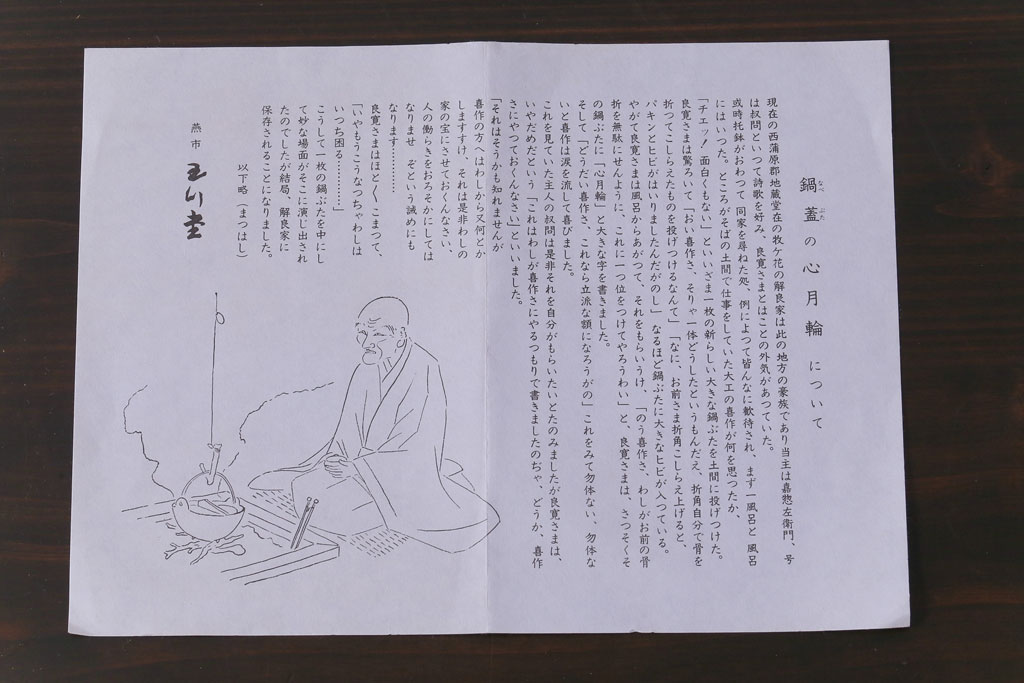 鍋蓋の心月輪について
なべ ぶた
現在の西蒲原郡地蔵堂在の牧ケ花の解良家は此の地方の豪族であり当主は嘉惣左衛門、号
は叔問といつて詩歌を好み、良寛さまとはことの外気があつていた。
或時托鉢がおわつて 同家を尋ねた処、例によつて皆んなに歓待され、まず一風呂と 風呂
にはいつた。ところがそばの土間で仕事をしていた大工の喜作が何を思つたか、
「チエッ！ 面白くもない」といいざま一枚の新らしい大きな鍋ぶたを土間に投げつけた。
良寛さまは驚ろいて「おい喜作さ、そりゃ一体どうしたというもんだえ、折角自分で骨を
折つてこしらえたものを投げつけるなんて」「なに、お前さま折角こしらえ上げると、
パキンとヒビがはいりましたんだがのし」 なるほど鍋ぶたに大きなヒビが入つている。
やがて良寛さまは風呂からあがつて、それをもらいうけ、「のう喜作さ、わしがお前の骨
折を無駄にせんように、これに一つ位をつけてやろうわい」と、良寛さまは、さつそくそ
の鍋ぶたに「心月輪」と大きな字を書きました。
そして「どうだい喜作さ、これなら立派な額になろうがの」これをみて勿体ない、勿体な
いと喜作は涙を流して喜びました。
これを見ていた主人の叔問は是非それを自分がもらいたいとたのみましたが良寛さまは、
いやだめだという「これはわしが喜作さにやるつもりで書きましたのぢゃ、どうか、喜作
さにやつておくんなさい」といいました。
「それはそうかも知れませんが
喜作の方へはわしから又何とか
しますすけ、それは是非わしの
家の宝にさせておくんなさい、
人の働らきをおろそかにしては
なりませ ぞという誡めにも
なります…………
良寛さまはほと〱こまつて、
「いやもうこうなつちゃわしは
いつち困る…………」
こうして一枚の鍋ぶたを中にし
て妙な場面がそこに演じ出され
たのでしたが結局、解良家に
保存されることになりました。
以下略（まつはし）
燕市 玉川堂